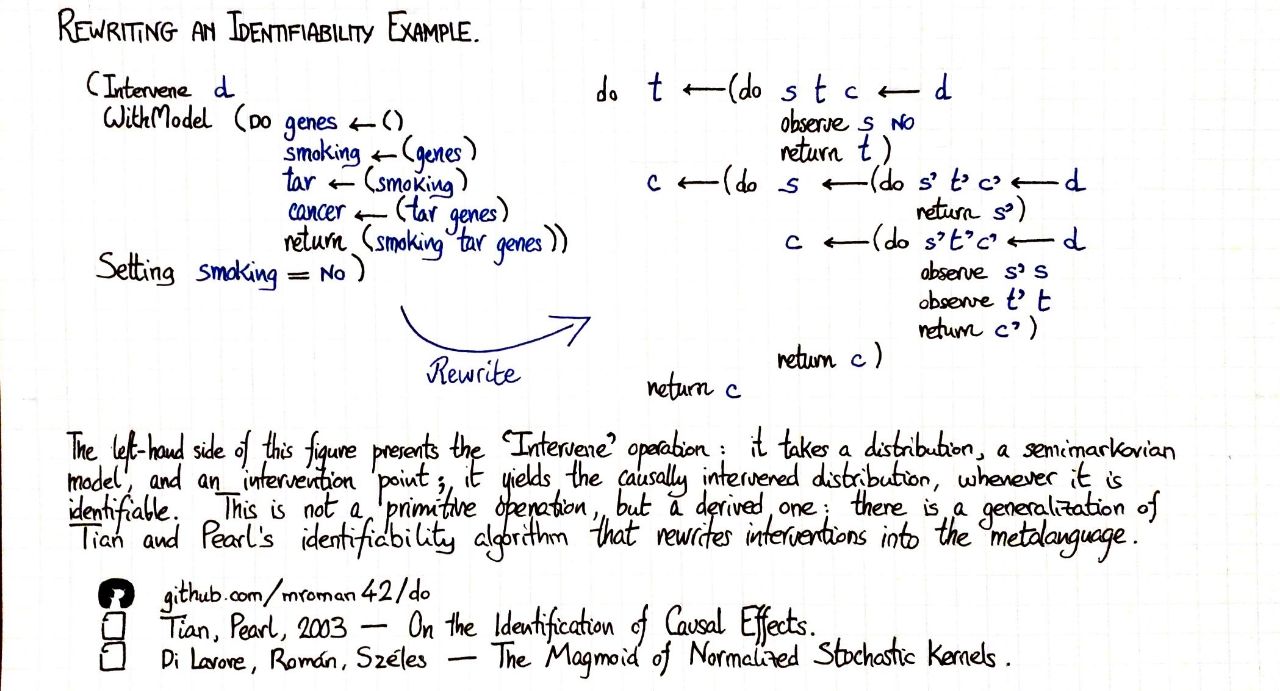 REWRITING AN IDENTIFIABILITY EXAMPLE.
(Intervene d
WithModel (DO genes ← ()
smoking ← (genes)
tar ← (smoking)
cancer ← (tar genes)
return (smoking tar genes))
Setting smoking = NO)
Rewrite
do t ← (do s t c ← d
observe s NO
return t)
c ← (do s ← (do s' t' c' ← d
return s')
c ← (do s' t' c' ← d
observe s' s
observe t' t
return c')
return c)
return c
The left-hand side of this figure presents the "Intervene" operation: it takes a distribution, a semimarkovian
model, and an intervention point; it yields the causally intervened distribution, whenever it is
identifiable. This is not a primitive operation, but a derived one: there is a generalization of
Tian and Pearl's identifiability algorithm that rewrites interventions into the metalanguage.
github.com/mroman42/do
Tian, Pearl, 2003 — On the Identification of Causal Effects.
Di Lavore, Román, Széles — The Magmoid of Normalized Stochastic Kernels.